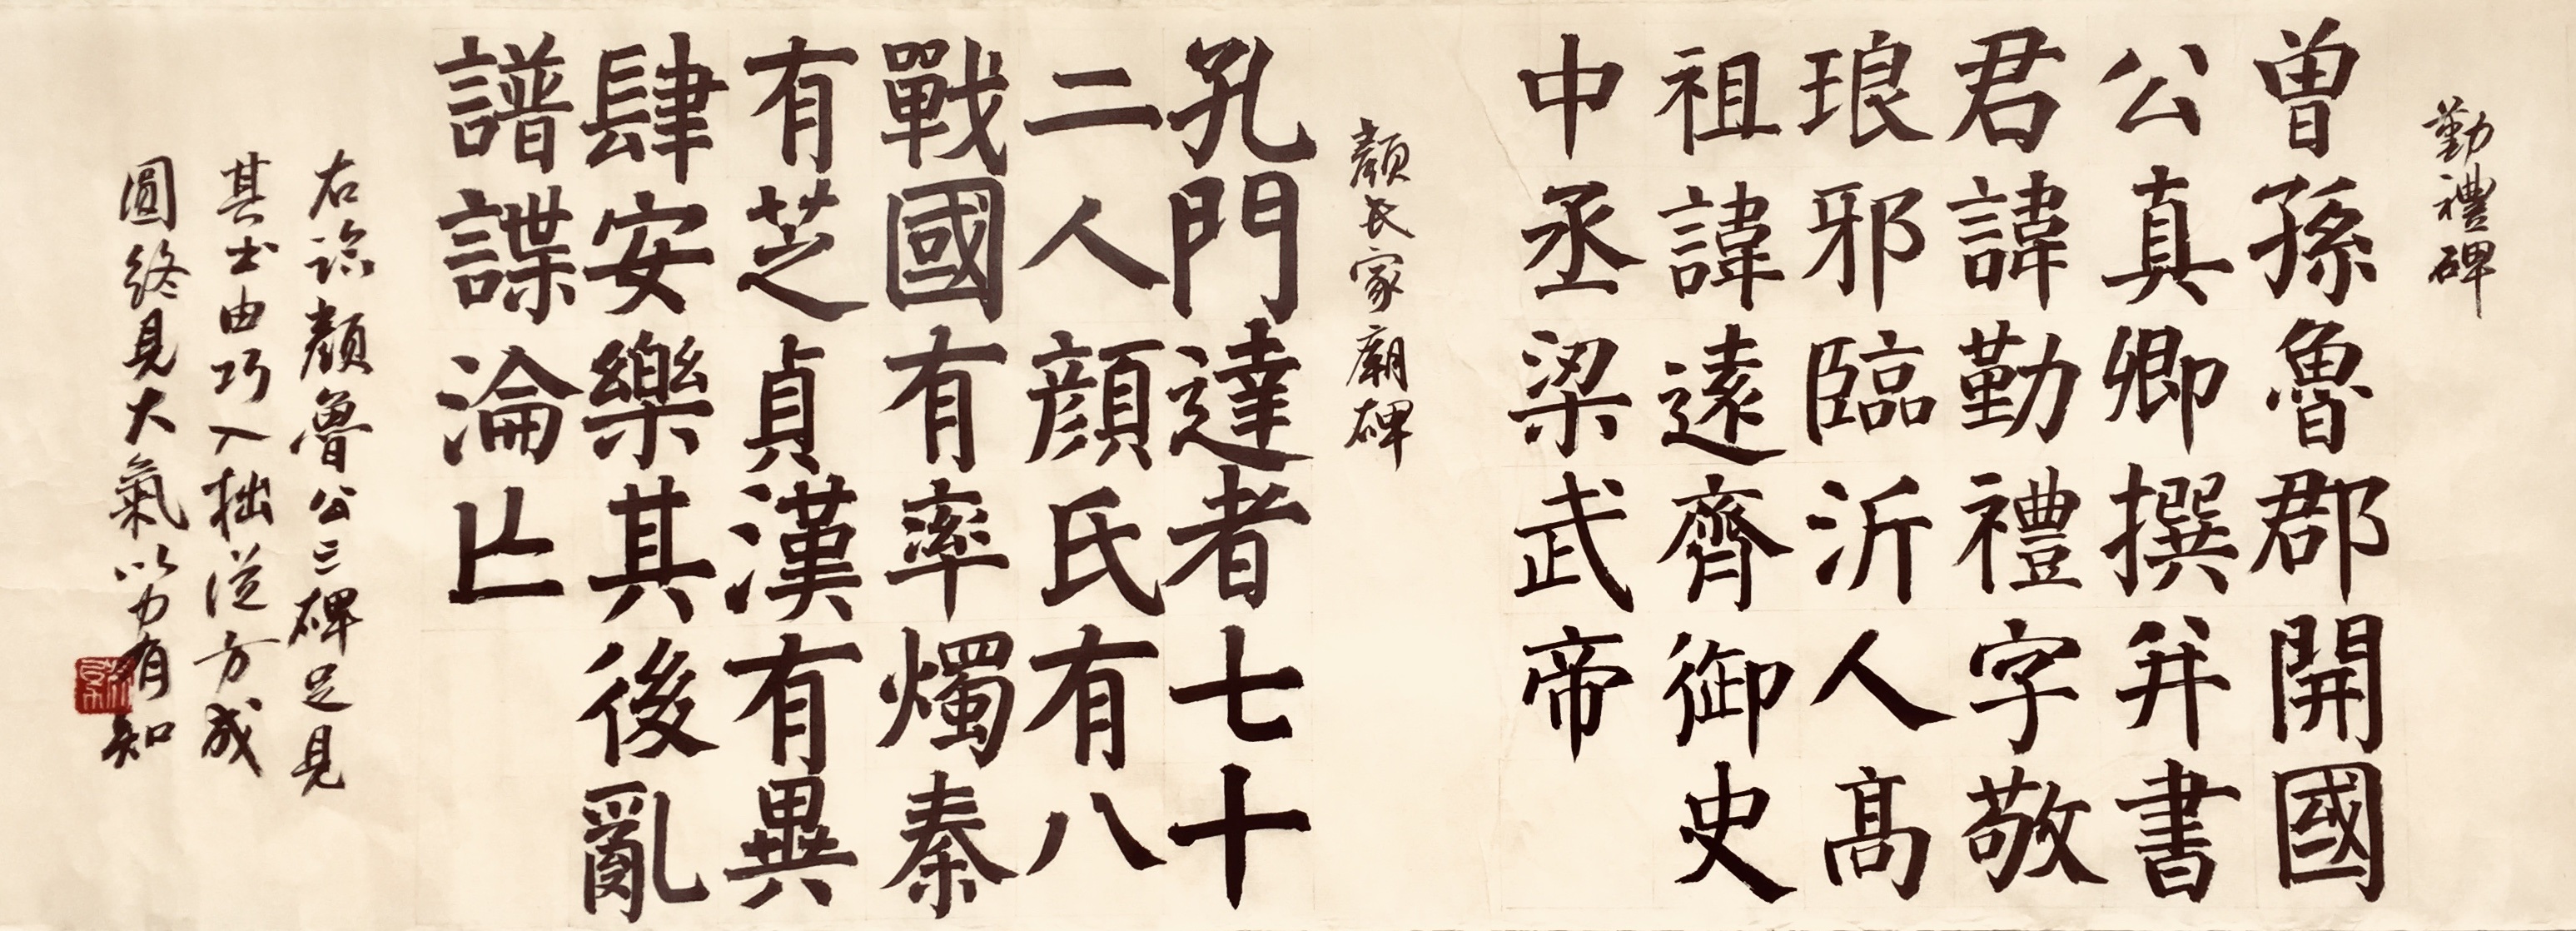 勤禮碑
曾孫魯郡開國
公真卿撰并書
君諱勤禮字敬
琅邪臨沂人高
祖諱遠齊御史
中丞梁武帝
顏氏家廟碑
孔門達者七十
二人顏氏有八
戰國有率燭秦
有芝貞漢有異
肆安樂其後亂
譜諜淪亾
右臨顏魯公二碑足見
其書由巧入拙從方成
圓終見大氣以力有知